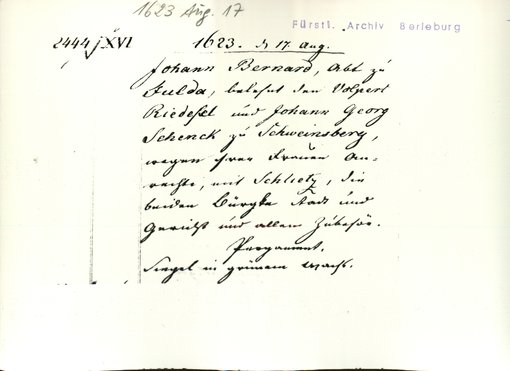 1623 Aug. 17
Fürstl. Archiv Berleburg
2444 / XVI
1623. d 17. Aug.
Johann Bernard, Abt zu
Fulda, belehnt den Volpert
Riedesel und Johann Georg
Schenck zu Schweinsberg,
wegen ihrer Frauen An-
rechte, mit Schlietz, die
beiden Bürgke Stadt und
Gericht und allem Zubehör.
Pergament.
Siegel in grünem Wachs.